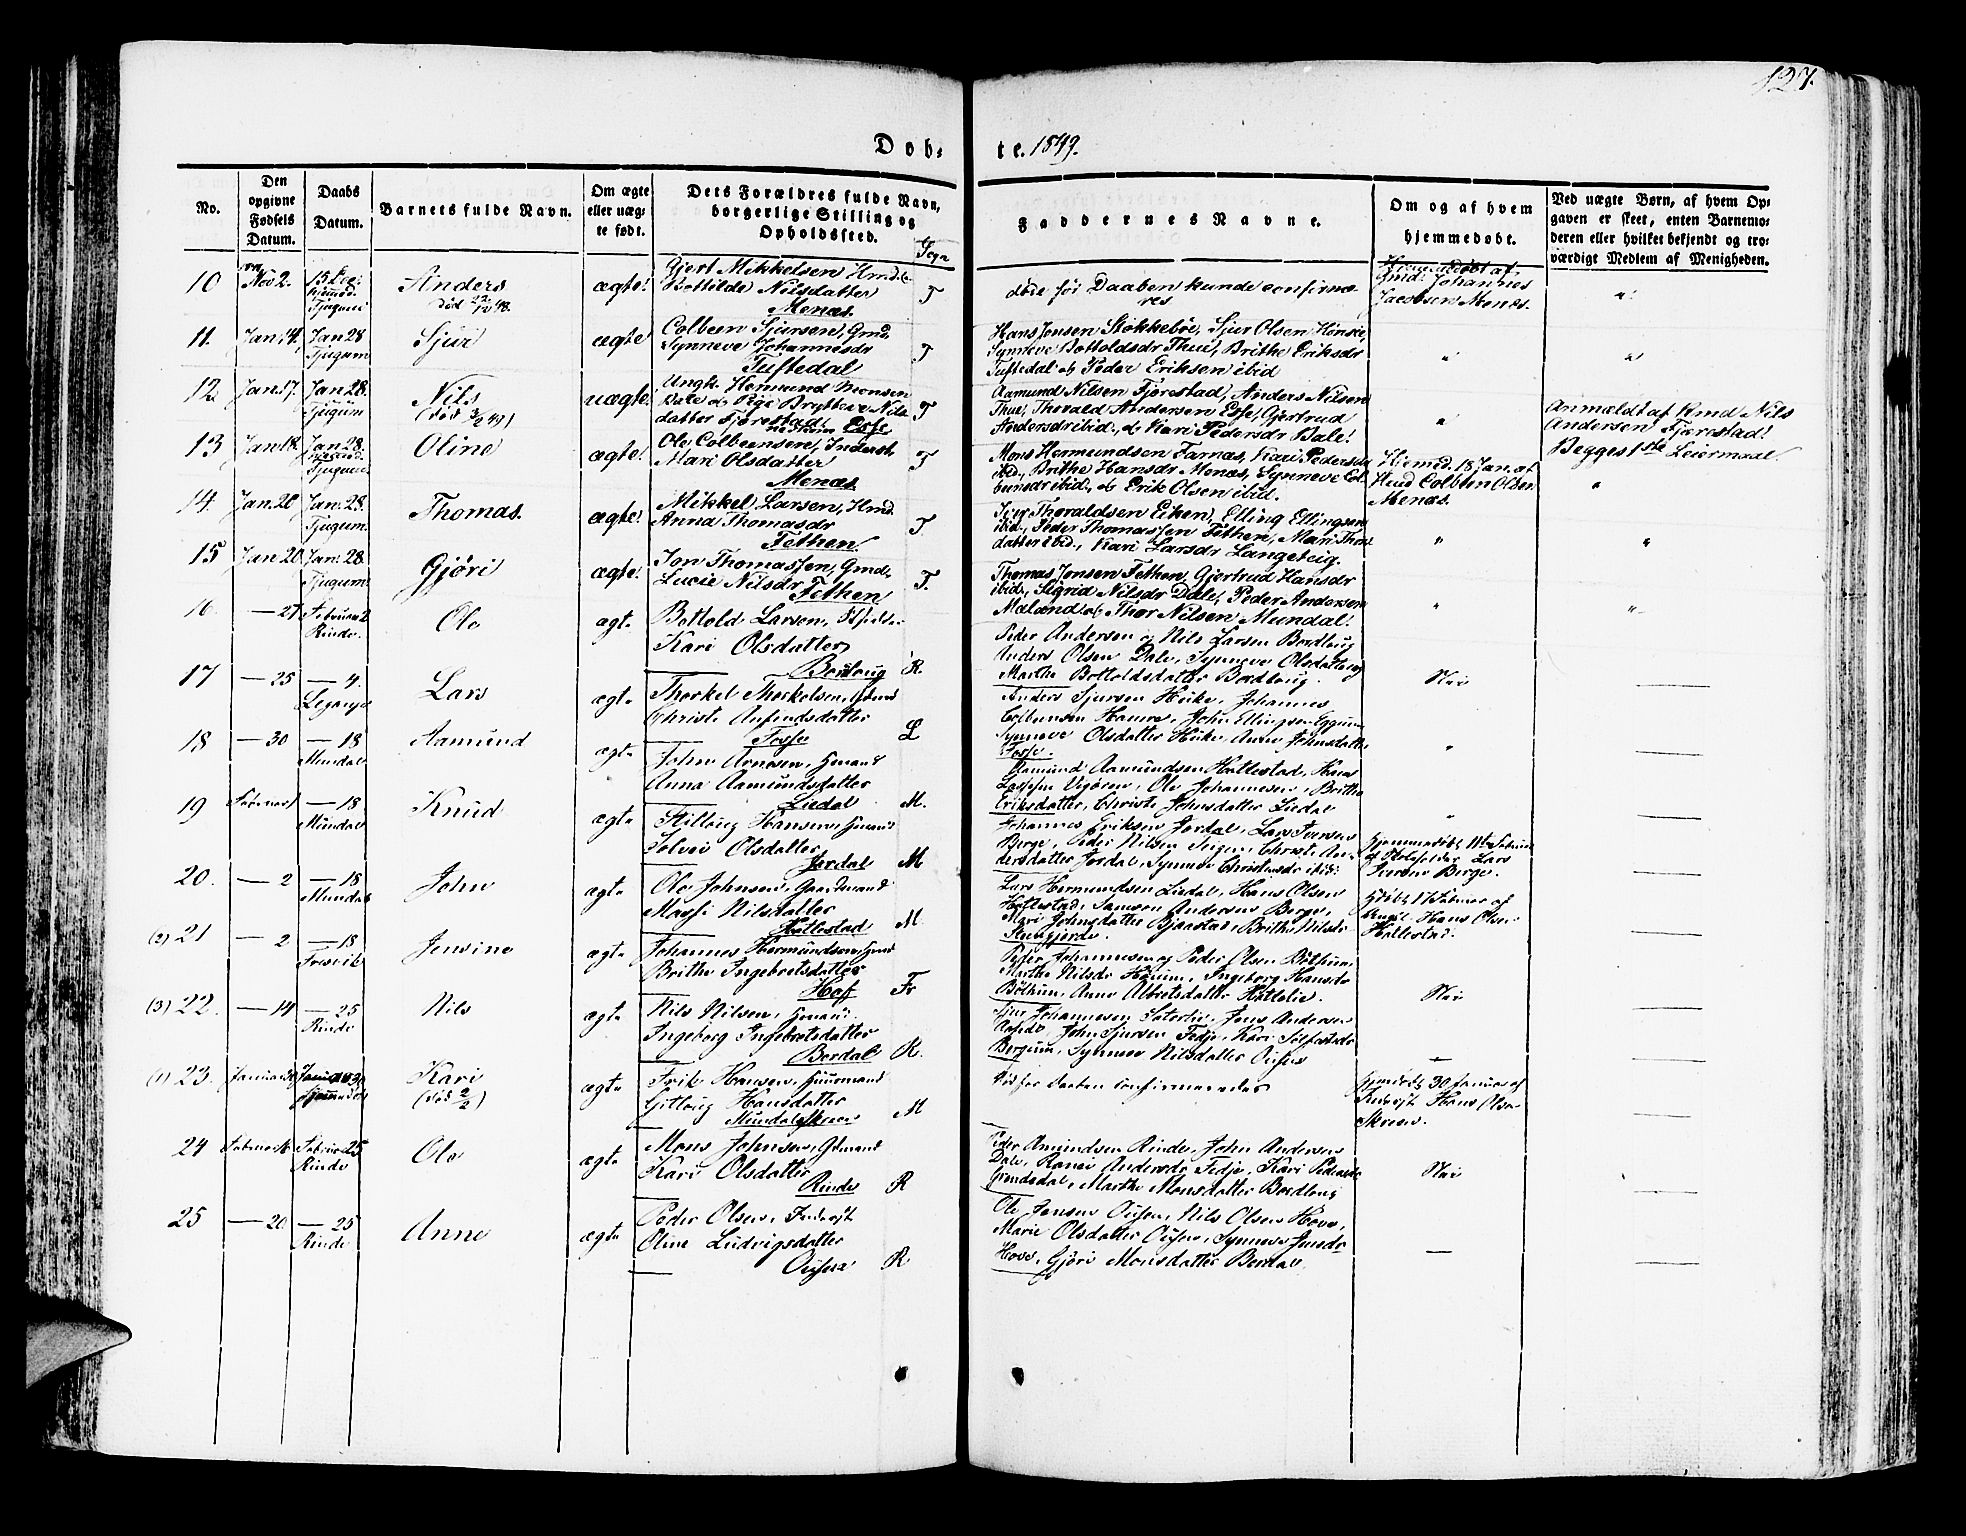 127.
Døb-
te. 1849.
No.
Den opgivne Fødsels Datum.
Daabs Datum.
Barnets fulde Navn.
Om ægte eller uæg-te født.
Dets Forældres fulde Navn, borgerlige Stilling og Opholdssted.
Sogn
Faddernes Navne.
Om og af hvem hjemmedøbt.
Ved uægte Børn, af hvem Op-gaven er skeet, enten Barnemo-deren eller hvilket bekjendt og tro-værdigt Medlem af Menigheden.
10
Nov 2.
Tjugum
Anders
død 22/12 48.
ægte!
Gjert Mikkelsen Hmd.
Bottilde Nilsdatter
Menæs.
T
døde før Daaben kunde confirme-
res
Hjemmedøbt af
Gmd: Johannes
Jacobsen Menæs.
11.
Jan: 14,
Jan: 28
Tjugum
Sjur
ægte
Colbeen Sjursen, Gmd.
Synneve Johannesdr
Tuftedal
T
Hans Jonsen Stokkebøe, Sjur Olsen Hønsie,
Synneve Bottoldsdr Thue, Brithe Eriksdr
Tuftedal og Peder Eriksen ibid
12
Jan: 17.
Jan: 28.
Tjugum
Nils
(død 3/2 49)
uægte!
Ungk. Hermund Monsen
Dale og Pige Brytteve Nils
datter Fjørestad!
Esse,
T
Aamund Nilsen Fjørestad, Anders Nilsen
Thue, Thorald Andersen Esse, Gjertrud
Andersdr ibid., og Kari Pedersdr Dale!
Anmældt af Kmd Nils
Andersen Fjærestad!
Begges 1ste Leiermaal
13
Jan: 18.
Jan: 28.
Tjugum
Oline
ægte!
Ole Colbeensen, Inderst
Mari Olsdatter
Menæs
T
Mons Hermundsen Farnæs, Kari Pedersdr
ibid., Brithe Hansdr Menæs, Synneve Col-
bensdr ibid., og Erik Olsen ibid.
Hjemmed. 18 Jan. af
Hmd Colbeen Olsen
Menæs.
14.
Jan. 20
Jan: 28.
Tjugum.
Thomas.
ægte!
Mikkel Larsen, Hmd.
Anna Thomasdr
Fethen.
T
Iver Thoraldsen Eiken, Elling Ellingsen
ibid., Peder Thomassen Fethen, Mari Thors
datter ibid., Kari Larsdr Langeteig.
15
Jan 20
Jan: 28.
Tjugum:
Gjøri
ægte!
Jon Thomassen, Gmd.
Lucie Nilsdr Fethen
T.
Thomas Jonsen Fethen, Gjertrud Hansdr
ibid., Sigrid Nilsdr Dale, Peder Andersen
Mæland og Thor Nilsen Mundal!
16
— 27
Februar 2
Rinde.
Ole
ægte
Bottold Larsen,
Kari Olsdatter
Bordlaug
R
Peder Andersen og Nils Larsen Bordlaug
Anders Olsen Dale, Synneve Olsdatter og
Marthe Bottoldsdatter Bordlaug.
Nei
17
— 25
— 4.
Leganger
Lars
ægte
Thorkel Thorkelsen, Gmand
Christi Anfindsdatter
Fosse
L
Anders Sjursen Huke, Johannes
Colbensen Hamre, John Ellingsen Eggum
Synneve Olsdatter Huke, Anne Johnsdatter
Fosse.
18
— 30
— 18
Mundal
Aamund
ægte
John Arnesen, Gmand
Anna Aamundsdatter
Liedal
M.
Aamund Aamundsen Hatlestad, Hans
Lassesen Vigøren, Ole Johannesen, Brithe
Eriksdatter, Christi Johnsdatter Liedal
19
Februar 1
— 18
Mundal
Knud
ægte
Stillaug Hansen, Gmand
Solvei Olsdatter
Jordal
M
Johannes Eriksen Jordal, Lars Iversen
Berge, Peder Nilsen Supn, Christi An-
dersdatter Jordal, Synneve Christensdr ibid:
Hjemmedøbt 11te Februar
af Skoleholder Lars
Iversen Berge.
20.
— 2
— 18
Mundal
John
ægte
Ole Johnsen, Gaardmand
Massi Nilsdatter
Hatlestad
M.
Lars Hermundsen Liedal, Hans Olsen
Hatlestad, Samson Andersen Berge,
Mari Johnsdatter Bjåstad, Brithe Nilsdr
Hjdøbt 17 Februar af
Ungk. Hans Olsen
Hatlestad.
(2) 21
— 2
— 18
Fresvik
Jensine
ægte
Johannes Hermundsen, Gmd
Brithe Ingebretsdatter
Hof
Fr
Peder Johannesen og Peder Olsen Bøthun,
Marthe Nilsdr Høium, Ingeborg Hansdr
Bøthun, Anne Albretsdatter Hatlelie.
Nei
(3) 22.
— 14
— 25
Rinde
Nils
ægte
Nils Nilsen, Gmand.
Ingeborg Ingebretsdatter
Bordal
R.
Sjur Johannesen Sæterlie, Jens Andersen
John Sjursen Fedje, Kari Solfestsdr
Bergum, Synneve Nilsdatter Ousen
—
(1) 23.
Januar 30
Januar 30
Kari
(død 2/2)
ægte
Erik Hansen, Huusmand
Gitlaug Hansdatter
Mundalsskreen
M
Død før Daaben confirmeredes
Hjemdøbt 30 Januar af
Inderst Hans Olsen
Skreen.
24
Februar
Februar 25
Rinde
Ole
ægte
Mons Johnsen, Gdmand
Kari Olsdatter
Rinde
R
Peder Amundsen Rinde, John Andersen
Dale, Ranei Andersdr Fedje, Kari Pedersdr
Grindsdal, Marthe Monsdatter Bordlaug
Nei
25
— 20
— 25
Rinde
Anne
ægte
Peder Olsen, Inderst
Oline Ludvigsdatter
Ousen
R
Ole Jensen Ousen, Nils Olsen Hove,
Marie Olsdatter Ousen, Synneve Jensdr
Hove, Gjøri Monsdatter Bordal.
—